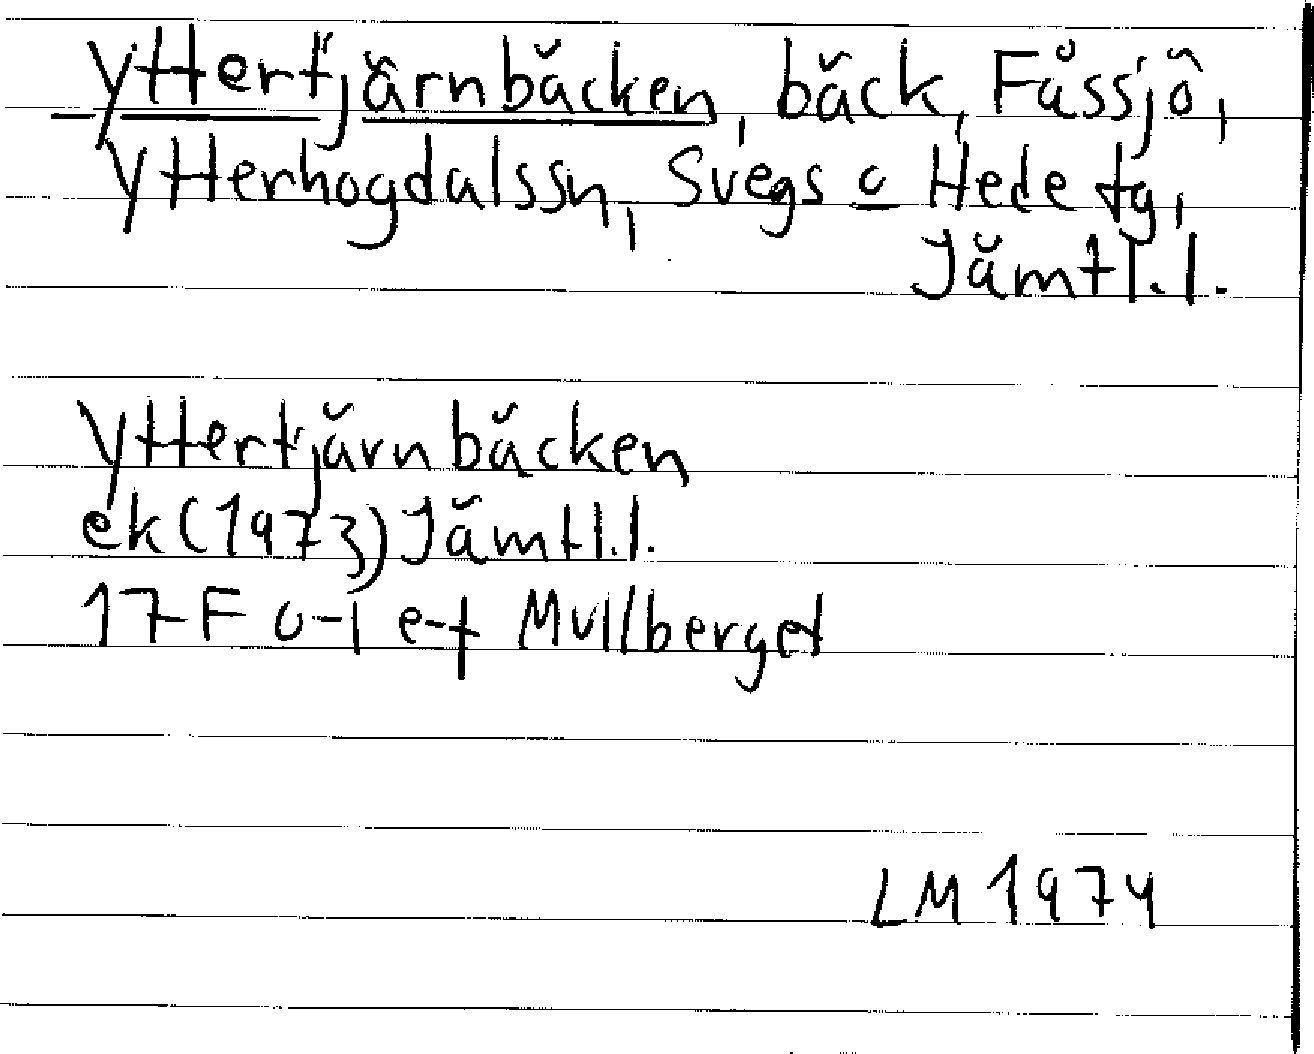 Yttertjärnbäcken, bäck, Fåssjö,
Ytterhogdalssn, Svegs o Hede tg,
Jämtl.l.
Yttertjärnbäcken
ek(1973) Jämtl.l.
17F o-i e-f Mullberget
LM 1974